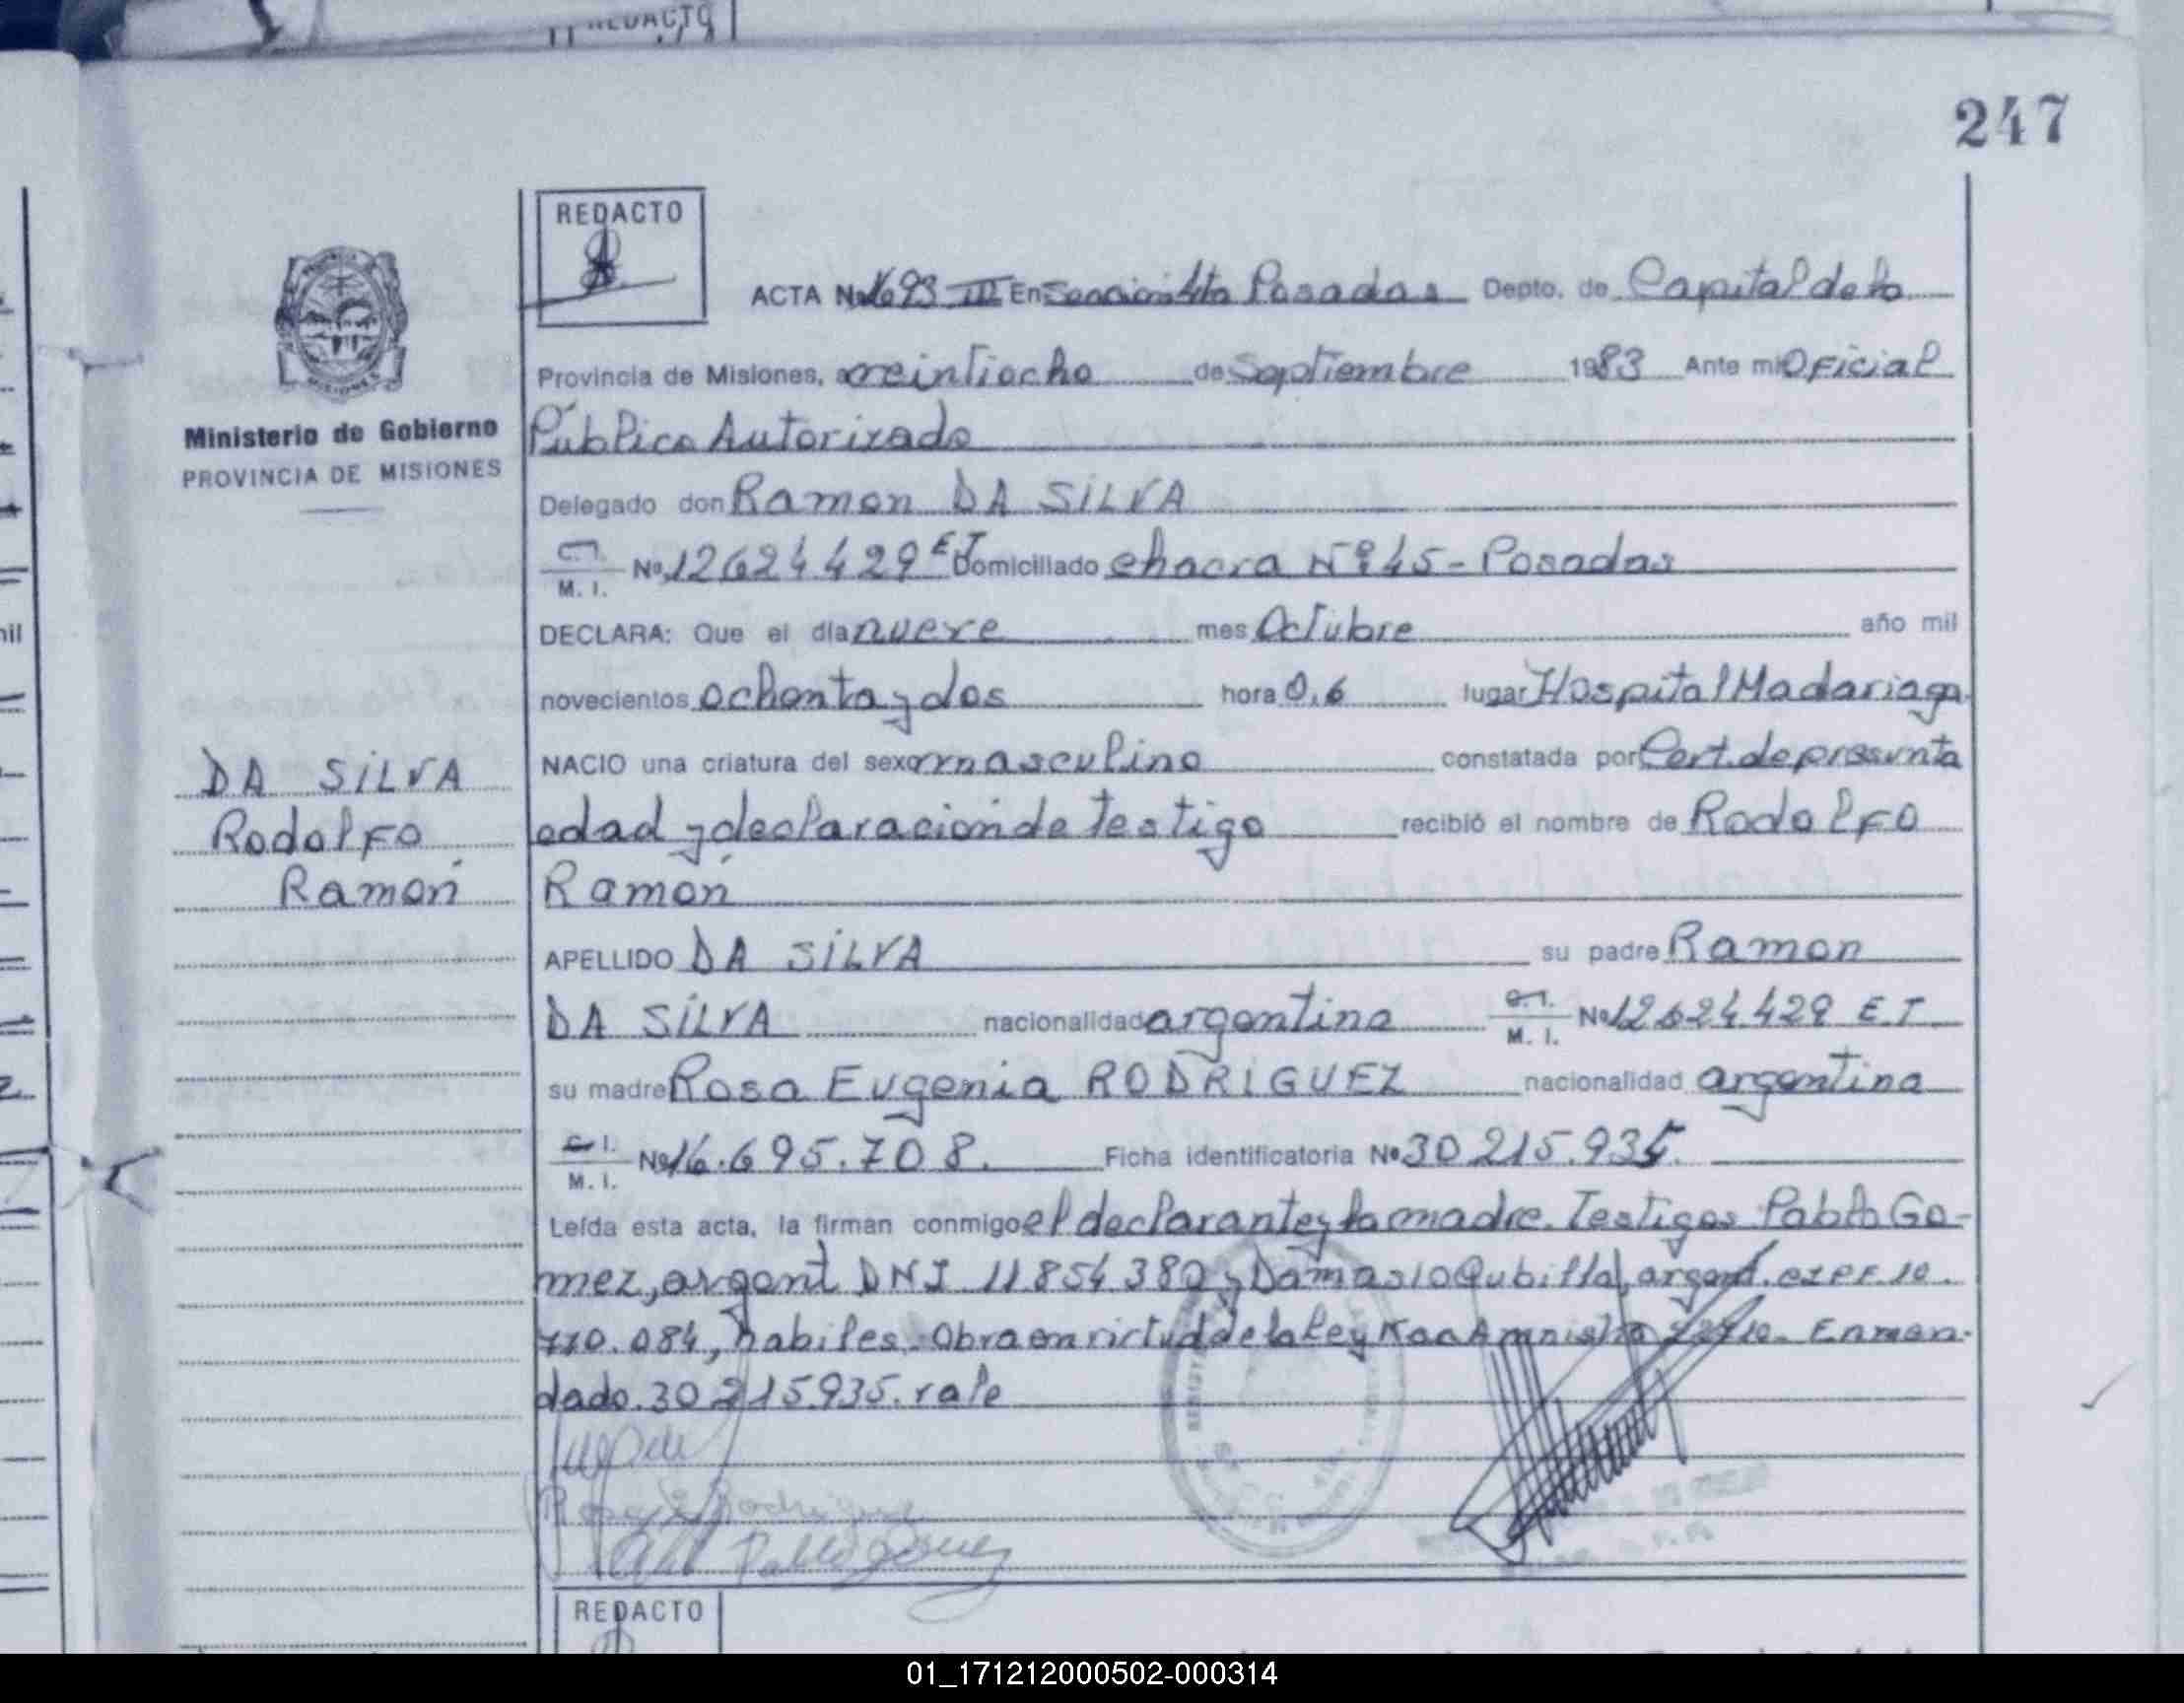 REDACTO
247
REDACTO
ACTA No 1693 III En Sección 4ta Posadas Depto. de Capital de la
Provincia de Misiones, a veintiocho de Septiembre 1983 Ante mi Oficial
Público Autorizado
Ministerio de Gobierno
PROVINCIA DE MISIONES
Delegado don Ramon DA SILVA
C.I. M. I. No 12624429 E T Domiciliado chacra Nº 45 - Posadas
DECLARA: Que el día nueve mes Octubre año mil
novecientos ochenta y dos hora 0,6 lugar Hospital Madariaga
NACIO una criatura del sexo masculino constatada por Cert. de presunta
DA SILVA
Rodolfo
Ramón
edad y declaración de testigo recibió el nombre de Rodolfo
Ramón
APELLIDO DA SILVA su padre Ramon
DA SILVA nacionalidad argentina C.I. M. I. No 12.624.429 E.T.
su madre Rosa Eugenia RODRIGUEZ nacionalidad argentina
C.I. M. I. No 16.695.708. Ficha identificatoria No 30 215.935.
Leída esta acta, la firman conmigo el declarante y la madre. Testigos Pablo Go-
mez, argent DNI 11854380 y Damasio Cubilla, argent. CIPF. 10.
770.084, habiles. Obra en victud de la Ley Amnistia 22410. Enmen-
dado. 30 215.935. vale
Rosa E Rodriguez
Pablo gomez
REDACTO
01_171212000502-000314